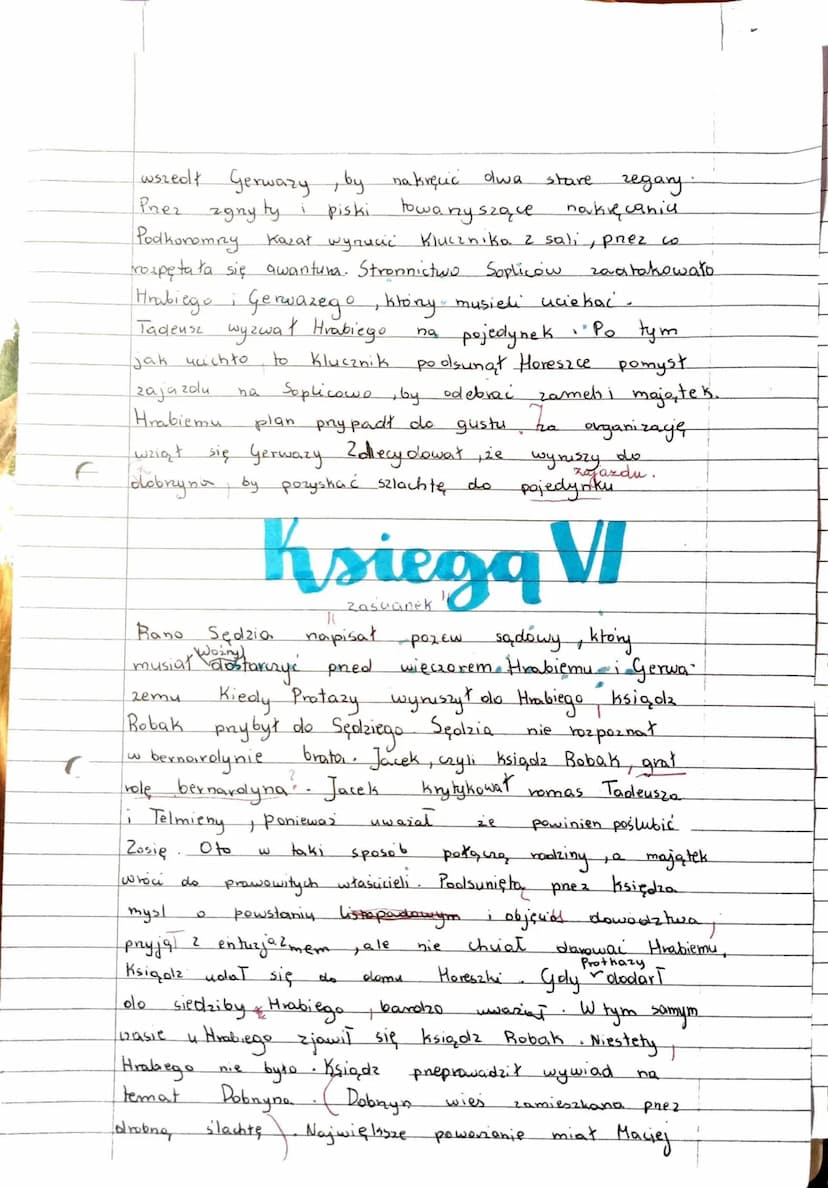 wszedł Gerwazy, by nakręcić dwa stare zegary.
Przez zgrzyty i piski towarzyszące nakręcaniu
Podkomorzy kazał wyrzucić Klucznika z sali, przez co
rozpętała się awantura. Stronnictwo Sopliców zaatakowało
Hrabiego i Gerwazego, który musieli uciekać.
Tadeusz wyzwał Hrabiego na pojedynek. Po tym
jak ucichło to Klucznik podsunął Horeszce pomysł
zajazdu na Soplicowo, by odebrać zamek i majątek.
Hrabiemu plan przypadł do gustu. Za organizację
wziął się Gerwazy Zdecydował, że wyruszy do
zajazdu.
dobrzyna, by pozyskać szlachtę do pojedynku
Księga VI
"zaścianek"
Rano Sędzia napisał pozew sądowy, który
Woźny
musiał dostarczyć przed wieczorem Hrabiemu i Gerwa-
zemu Kiedy Protazy wyruszył do Hrabiego, ksiądz
Robak przybył do Sędziego. Sędzia nie rozpoznał
w bernardynie brata. Jacek, czyli ksiądz Robak, grał
rolę bernardyna?. Jacek krytykował romas Tadeusza
i Telmieny, ponieważ uważał że powinien poślubić
Zosię. Oto w taki sposób połączą rodziny, a majątek
wróci do prawowitych właścicieli. Podsuniętą przez księdza
mysl o powstaniu listopadowym i objęciu dowodztwa,
przyjął z entuzjazmem, ale nie chciał darować Hrabiemu,
Ksiądz udał się do domu Horeszki. Gdy dodarł
Prothazy
do siedziby Hrabiego, bardzo uważał. W tym samym
czasie u Hrabiego zjawił się ksiądz Robak. Niestety,
Hrabego nie było. Ksiądz przeprowadził wywiad na
temat Dobrzyna. (Dobrzyn wieś zamieszkana przez
drobną ślachtę). Największe poważanie miał Maciej